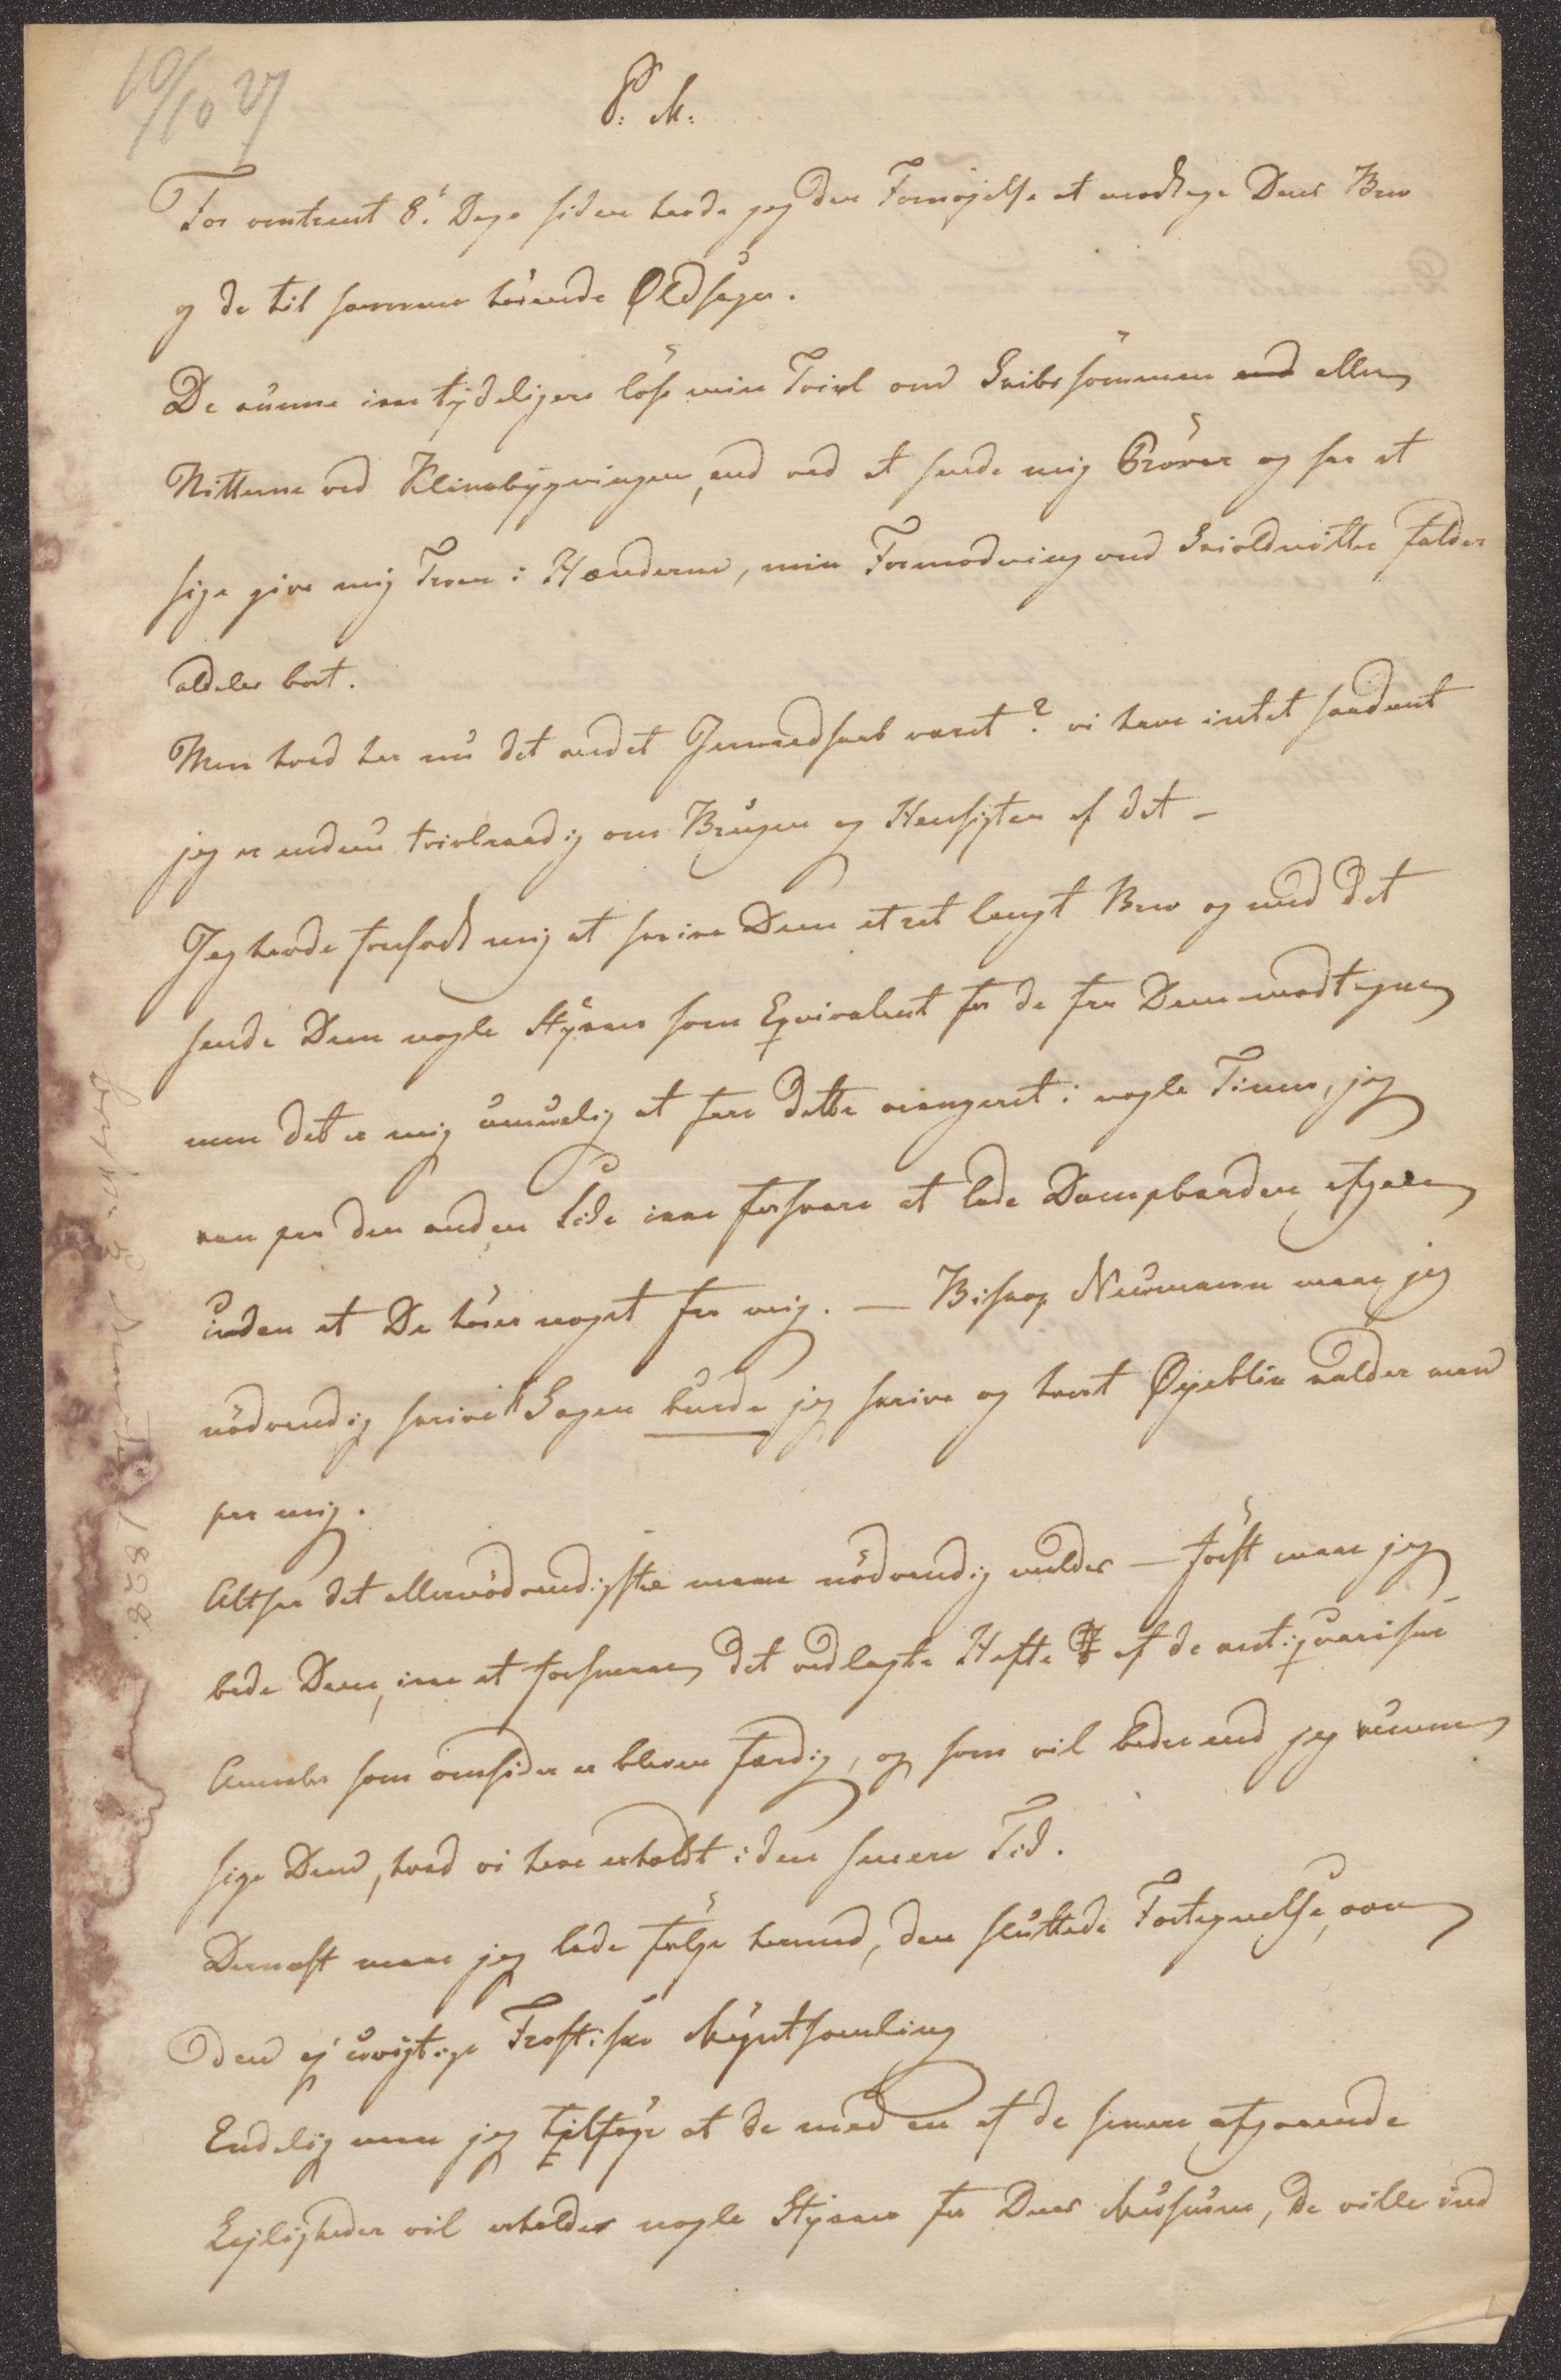 10/10 27
P. M.
For omtrent 8. Dage siden havde jeg den Fornøjelse at modtage Deres Brev
og de til samme hørende Oldsager.
De kunne ikke tydeligere løse min Tvivl om Skibssømmene end eller
Nitterne ved Klinkbygningen, end ved at sende mig Prøver og saa at
sige give mig Troen i Hænderne, min Formodning om Skioldnitter falder
aldeles bort.
Men hvad har nu det andet Jernredskab været? vi have intet saadant
jeg er endnu tvivlraadig om Brugen og Hensigten af det –
Jeg havde forsadt mig at skrive Dem et ret langt Brev og med det
sende Dem nogle Stykker som Eqvivalent for de fra Dem modtagne
men det er mig umuelig at faae dette arangeret i nogle Timer, jeg
kan paa den anden Side ikke forsvare at lade Dampbaaden afgaae
inden at De hører noget fra mig. — Biskop Neumann maa jeg
nødvendig skrive Sagen burde jeg skrive og hvert Øyeblik kalder man
paa mig.
Altsaa det allernødvendigste maae nødvendig meldes — først maae jeg
bede Dem, ikke at forsmaae det vedlagte Hefte af de antiqvariske
Annaler som omsider er bleven færdig, og som vil bedre end jeg kunne
sige Dem, hvad vi have erholdt i den senere Tid.
Dernæst maae jeg lade følge hermed, den sluttede Fortegnelse, over
den ej uvigtige Frostiske Myntsamling
Endelig maa jeg tilføye at de med en af de sinere afgaaende
Lejligheder vil erholde nogle Stykker for Deres Musæum, De ville ved
1828.